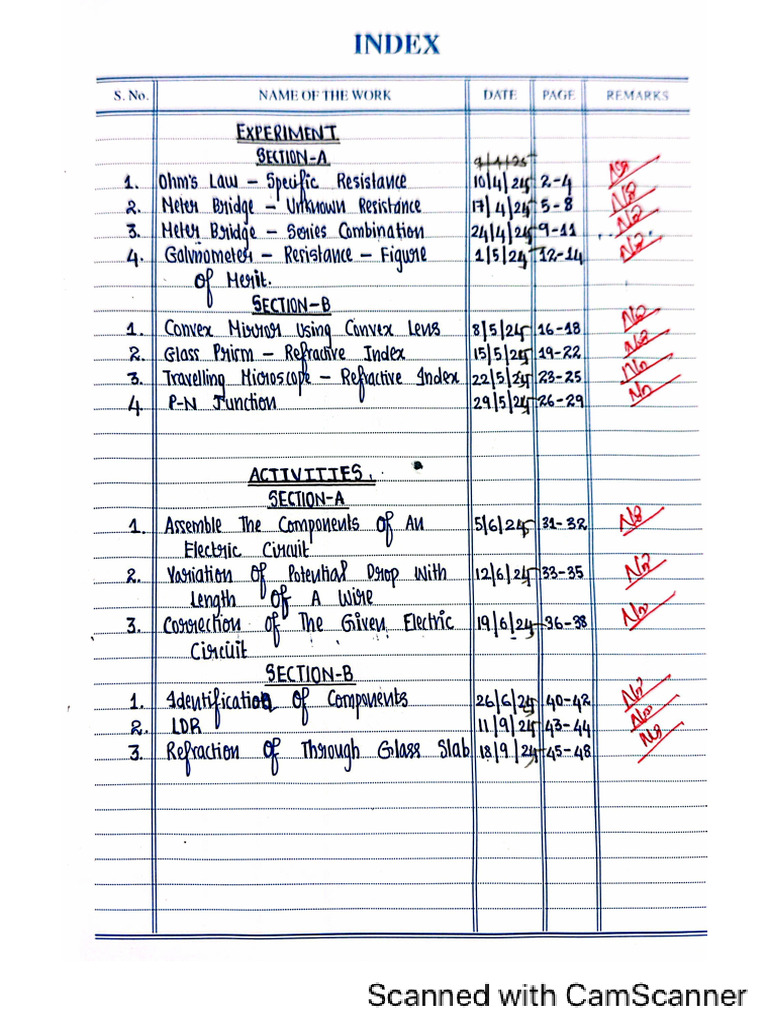 INDEX
S. No. NAME OF THE WORK DATE PAGE REMARKS
EXPERIMENT
SECTION-A 9/4/25
1. Ohm's Law - Specific Resistance 10/4/25 2-4
2. Meter Bridge - Unknown Resistance 17/4/25 5-8
3. Meter Bridge - Series Combination 24/4/25 9-11
4. Galvnometer - Resistance - Figure 1/5/25 12-14
of Merit.
SECTION-B
1. Convex Mirror Using Convex Lens 8/5/25 16-18
2. Glass Prism - Refractive Index 15/5/25 19-22
3. Travelling Microscope - Refractive Index 22/5/25 23-25
4 P-N Junction 29/5/25 26-29
ACTIVITIES.
SECTION-A
1. Assemble The Components Of An 5/6/25 31-32
Electric Circuit
2. Variation Of Potential Drop With 12/6/25 33-35
Length Of A Wire
3. Correction Of The Given Electric 19/6/25 36-38
Circuit
SECTION-B
1. Identification Of Components 26/6/25 40-42
2. LDR 11/9/25 43-44
3. Refraction Of Through Glass Slab 18/9/25 45-48
Scanned with CamScanner